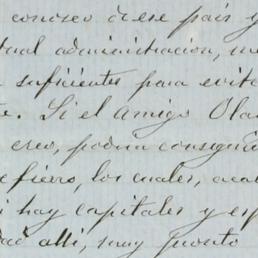 conosco de ese pais y
tual administracion, me
suficientes para evite
te. Si el amigo Ola
creo, podria consegui
refiero, los cuales, aca
i hay capitales y esp
dad alli, muy pronto